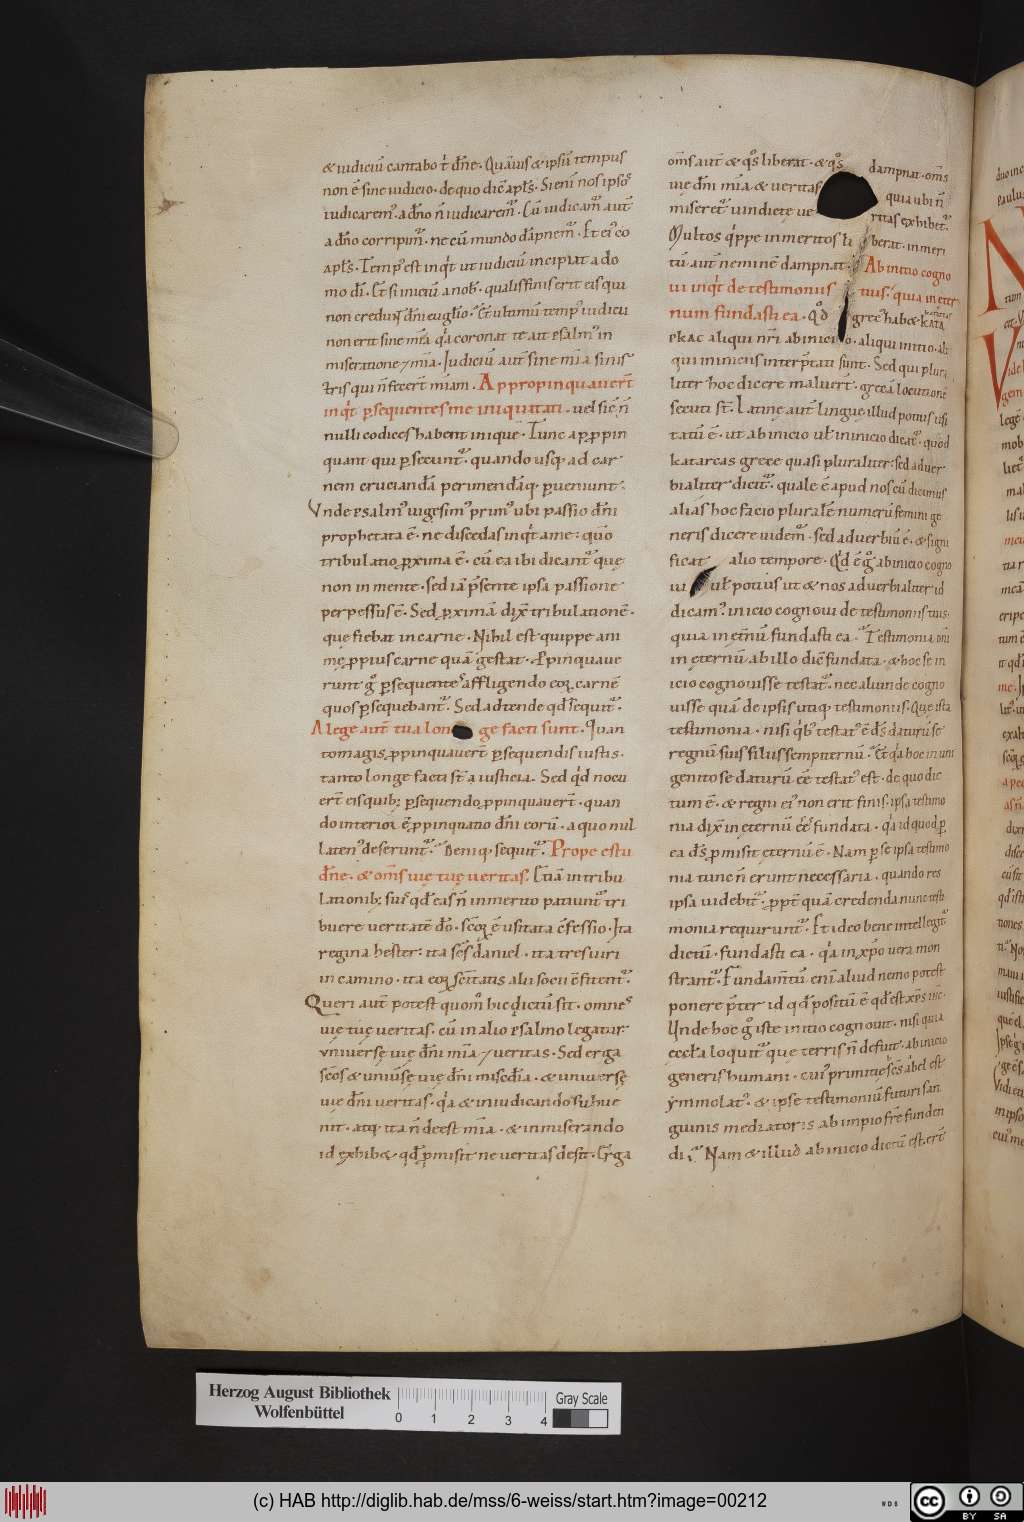 & iudiciũ cantabo t' dñe. Quãuis & ipsũ tempus
non ẽ sine iudicio. de quo diẽ apłs. Si enĩ nos ipsos
iudicarem'. a dño ñ iudicarem̃. Cũ iudicam̃ aut̃
a dño corripim̃. ne cũ mundo dãpnem̃. Et ei' co
apłs. Temp' est inq't ut iudiciũ incipiat a do
mo dĩ. Et si iniciũ a nob'. qualis finis erit eis qui
non credunt dñi euglio. Et ultimũ temp' iudicii
non erit sine mĩa. q'a coronat te ait psalm' in
miseratione 7 mĩa. Iudiciũ aut̃ sine mĩa sinis
tris qui ñ fecert̃ miam. Appropinquauert̃
inq't psequentes me iniquitati. uel sic̃ ñ
nulli codices habent inique. Tunc apppin
quant qui psecunt̃. quando usq; ad car
nem cruciandã perimendãq; pueniunt.
Vnde psalm' uigesim' prim' ubi passio dñi
prophetata ẽ. ne discedas inq't a me: quõ
tribulatio pxima ẽ. cũ ea ibi dicant̃ que
non in mente. sed iã p̃sente ipsa passione
perpessus ẽ. Sed pximã dix̃ tribulationẽ.
que fiebat in carne. Nihil est quippe ani
me ppius carne quã gestat. Appinquaue
runt g° psequentes affligendo eoꝝ carnẽ
quos psequebant̃. Sed adtende qd̃ sequit̃.
A lege aut̃ tua lon ge facti sunt. Quan
to magis ppinquauert̃ psequendis iustis.
tanto longe facti st̃ a iusticia. Sed q'd nocu
ert̃ eis quib; psequendo ppinquauert̃. quan
do interior ẽ ppinquatio dñi eorũ. a quo nul
laten' deserunt̃. Deniq; sequit̃. Prope es tu
dñe. & oms uie tue ueritas. Etiã in tribu
lationib; suis qd̃ eas ñ inmerito patiunt̃ tri
buere ueritatẽ dõ. scõꝝ ẽ usitata cfessio. Ita
regina hester: ita scs daniel. ita tres uiri
in camino. ita eoꝝ scitatis alii socii cfitent̃.
Queri aut̃ potest quom° hic dictũ sit. omnes
uie tue ueritas. cũ in alio psalmo legatur
vniuerse uie dñi mĩa 7 ueritas. Sed erga
scõs & uniũse uie dñi misedĩa. & uniuerse
uie dñi ueritas. q'a & in iudicando subue
nit. atq; ita ñ deest mĩa. & in miserando
id exhib& qd̃ pmisit ne ueritas desit. Erga
oms aut̃ & q°s liberat. & q°s dampnat. oms
uie dñi mĩa & ueritas quia ubi ñ
miseret̃ uindicte ue ritas exhibet̃.
Multos q'ppe inmeritos li berat. inmeri
tũ aut̃ neminẽ dampnat. Ab initio cogno
ui inq't de testimoniis tuis. quia in eter
num fundasti ea. Q°d grec' hab&. kata
pkac aliqui nr̃i ab inicio. aliqui initio. ali
qui in iniciis interp̃tati sunt. Sed qui plura
liter hoc dicere maluert̃. grecã locutionẽ
secuti st̃. Latine aut̃ lingue illud potius usi
tatũ ẽ. ut ab inicio uł in inicio dicat̃. quod
katarcas grece quasi pluraliter: sed aduer
bialiter dicit̃. quale ẽ apud nos cũ dicimus
alias hoc facio plurałe numerũ femini ge
neris dicere uidem̃. sed aduerbiũ ẽ. & signi
ficat alio tempore. Q'd ẽ g° ab inicio cogno
ui uł potius ut & nos aduerbialiter id
dicam'. inicio cognoui de testimoniis tuis.
quia in et̃nũ fundasti ea. Testimonia dñi
in eternũ ab illo diẽ fundata. & hoc se in
icio cognouisse testat̃. nec aliunde cogno
uisse quã de ipsis utiq; testimoniis. Que ista
testimonia. nisi q'b' testat' ẽ dš daturũ se
regnũ suis filiis sempiternũ. Et q'a hoc in uni
genito se daturũ ẽe testat' est. de quo dic
tum ẽ. & regni ei' non erit finis. ipsa testimo
nia dix̃ in eternũ ẽe fundata. q'a id quod p
ea dš pmisit eternũ ẽ. Nam p se ipsa testimo
nia tunc ñ erunt necessaria. quando res
ipsa uidebit̃. ppt̃ quã credenda nunc testi
monia requirunt̃. Et ideo bene intellegit̃
dictũ. fundasti ea. q'a in xp̃o uera mon
strant̃. Fundam̃tũ enĩ aliud nemo potest
ponere p̃ter id qd̃ positũ ẽ qd̃ est xp̃s ihc̃.
Unde hoc g° iste initio cognouit. nisi quia
ecc̃ła loquit̃ que terris ñ defuit. ab inicio
generis humani. cui' primitie scs abel est
ymmolat'. & ipse testimoniũ futuri san
guinis mediatoris ab impio fr̃e funden
di. Nam & illud ab inicio dictũ est. ert̃
Herzog August Bibliothek
Wolfenbüttel
0 1 2 3 4
Gray Scale
(c) HAB http://diglib.hab.de/mss/6-weiss/start.htm?image=00212
WDB
cc
BY SA